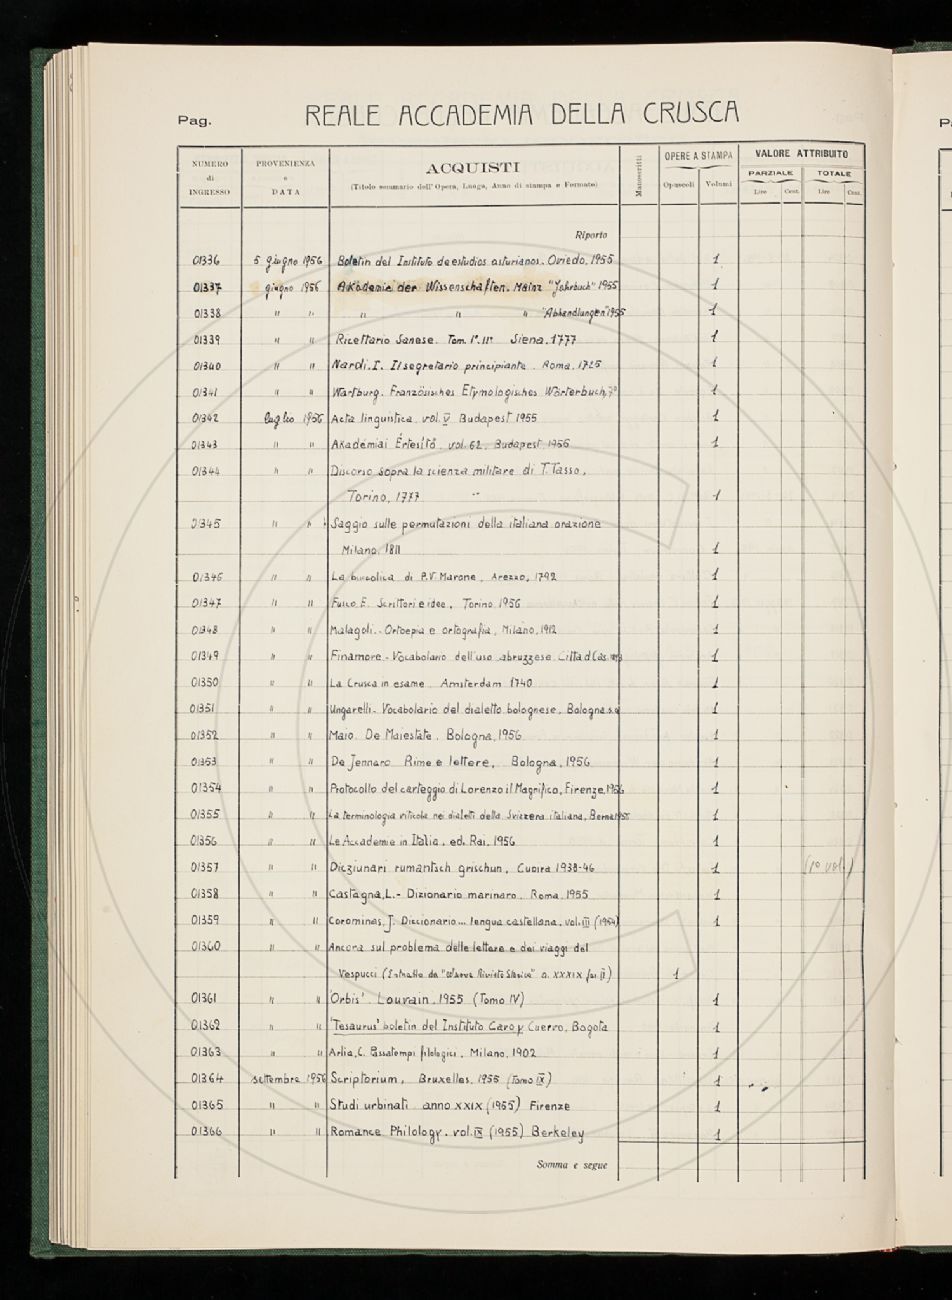 Pag. REALE ACCADEMIA DELLA CRUSCA
NUMERO di INGRESSO
PROVENIENZA e DATA
ACQUISTI
(Titolo sommario dell'Opera, Luogo, Anno di stampa e Formato)
Manoscritti
OPERE A STAMPA
Opuscoli Volumi
VALORE ATTRIBUITO
PARZIALE TOTALE
Lire Cent. Lire Cent.
Riporto
01336 5 giugno 1956 Boletin del Instituto de estudios asturianos. Oviedo, 1955 1
01337 giugno 1956 Akademie der Wissenschaften. Mainz "Jahrbuch" 1955 1
01338 " " " " " "Abhandlungen" 1955 1
01339 " " Ricettario Sanese. Tom. I°. II° Siena, 1777 1
01340 " " Nardi, I. Il segretario principiante. Roma, 1725 1
01341 " " Wartburg. Französisches Etymologisches Wörterbuch, 1
01342 luglio 1956 Acta linguistica, vol. V Budapest 1955 1
01343 " " Akadémiai Értesítő. vol. 62. Budapest 1955 1
01344 " " Discorso sopra la scienza militare di T. Tasso,
Torino, 1777 1
01345 " " Saggio sulle permutazioni della italiana orazione
Milano, 1811 1
01346 " " La buccolica di P. V. Marone, Arezzo, 1792 1
01347 " " Fusco, E. Scrittori e idee, Torino 1956 1
01348 " " Malagoli.. Ortoepia e ortografia, Milano, 1912 1
01349 " " Finamore - Vocabolario dell'uso abruzzese. Città d Cas. 1893 1
01350 " " La Crusca in esame. Amsterdam 1740 1
01351 " " Ungarelli - Vocabolario del dialetto bolognese, Bologna s.a 1
01352 " " Maio. De Maiestate. Bologna, 1956 1
01353 " " De Jennaro Rime e lettere, Bologna, 1956 1
01354 " " Protocollo del carteggio di Lorenzo il Magnifico, Firenze, 1956 1
01355 " " La terminologia viticola nei dialetti della Svizzera italiana, Berna 1955 1
01356 " " Le Accademie in Italia, ed. Rai, 1956 1
01357 " " Dicziunari rumantsch grischun, Cuoira 1938-46 1 (1° vol.)
01358 " " Castagna, L.- Dizionario marinaro. Roma, 1955 1
01359 " " Corominas, J. Diccionario... lengua castellana, vol. III (1954) 1
01360 " " Ancora sul problema delle lettere e dei viaggi del
Vespucci (Estratto da "Nuova Rivista Storica" a. XXXIX fas. II) 1
01361 " " 'Orbis'. Louvain, 1955 (Tomo IV) 1
01362 " 'Tesaurus' boletin del Instituto Caro y Cuervo, Bogota 1
01363 " " Arlia, C. Passatempi filologici, Milano, 1902 1
01364 settembre 1956 Scriptorium, Bruxelles, 1955 (Tomo IX) 1
01365 " " Studi urbinati anno XXIX (1955) Firenze 1
01366 " " Romance Philology. vol. IX (1955) Berkeley 1
Somma e segue